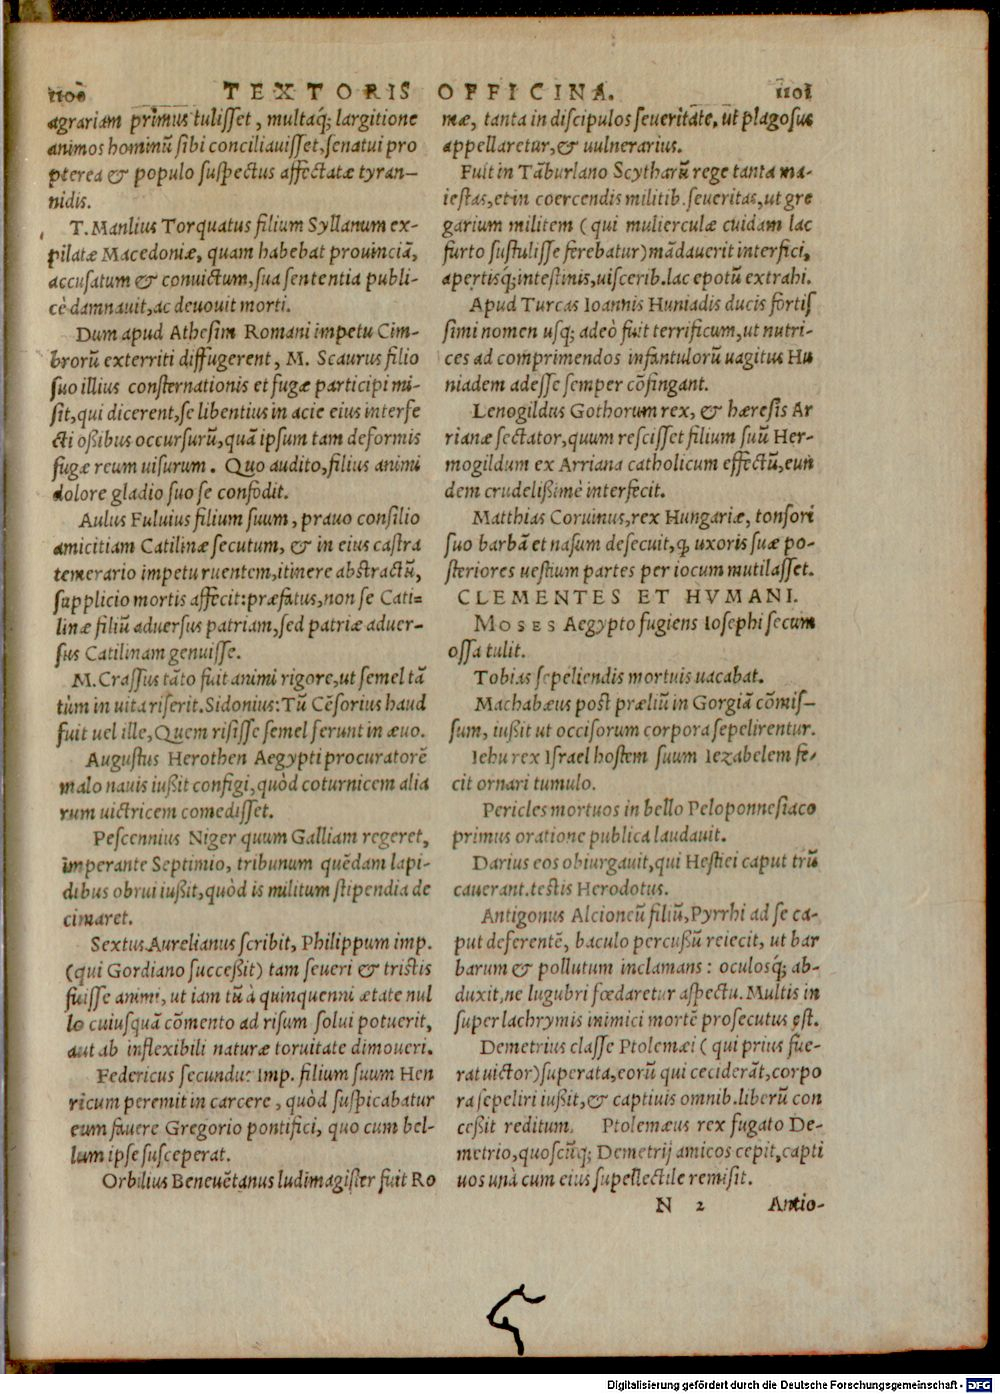 1100 TEXTORIS OFFICINA. 1101
agrariam primus tulisset, multaq́; largitione
animos hominũ sibi conciliauisset, senatui pro
pterea & populo suspectus affectatæ tyran-
nidis.
T. Manlius Torquatus filium Syllanum ex-
pilatæ Macedoniæ, quam habebat prouinciã,
accusatum & conuictum, sua sententia publi-
cè damnauit, ac deuouit morti.
Dum apud Athesim Romani impetu Cim-
brorũ exterriti diffugerent, M. Scaurus filio
suo illius consternationis et fugæ participi mi-
sit, qui dicerent, se libentius in acie eius interfe
cti oßibus occursurũ, quã ipsum tam deformis
fugæ reum uisurum. Quo audito, filius animi
dolore gladio suo se confodit.
Aulus Fuluius filium suum, prauo consilio
amicitiam Catilinæ secutum, & in eius castra
temerario impetu ruentem, itinere abstractũ,
supplicio mortis affecit: præfatus, non se Cati=
linæ filiũ aduersus patriam, sed patriæ aduer-
sus Catilinam genuisse.
M. Crassus tãto fuit animi rigore, ut semel tã
tùm in uita riserit. Sidonius: Tũ Cẽsorius haud
fuit uel ille, Quem risisse semel ferunt in æuo.
Augustus Herothen Aegypti procuratorẽ
malo nauis iußit configi, quòd coturnicem alia
rum uictricem comedisset.
Pescennius Niger quum Galliam regeret,
imperante Septimio, tribunum quẽdam lapi-
dibus obrui iußit, quòd is militum stipendia de
cimaret.
Sextus Aurelianus scribit, Philippum imp.
(qui Gordiano succeßit) tam seueri & tristis
fuisse animi, ut iam tũ à quinquenni ætate nul
lo cuiusquã cõmento ad risum solui potuerit,
aut ab inflexibili naturæ toruitate dimoueri.
Federicus secundus Imp. filium suum Hen
ricum peremit in carcere, quòd suspicabatur
eum fauere Gregorio pontifici, quo cum bel-
lum ipse susceperat.
Orbilius Beneuẽtanus ludimagister fuit Ro
mæ, tanta in discipulos seueritate, ut plagosus
appellaretur, & uulnerarius.
Fuit in Tãburlano Scytharũ rege tanta ma-
iestas, et in coercendis militib. seueritas, ut gre
garium militem (qui mulierculæ cuidam lac
furto sustulisse ferebatur) mãdauerit interfici,
apertisq́; intestinis, uiscerib. lac epotũ extrahi.
Apud Turcas Ioannis Huniadis ducis fortis
simi nomen usq; adeò fuit terrificum, ut nutri-
ces ad comprimendos infantulorũ uagitus Hu
niadem adesse semper cõfingant.
Lenogildus Gothorum rex, & hæresis Ar
rianæ sectator, quum rescisset filium suũ Her-
mogildum ex Arriana catholicum effectũ, eun
dem crudelißimè interfecit.
Matthias Coruinus, rex Hungariæ, tonsori
suo barbã et nasum desecuit, q, uxoris suæ po-
steriores uestium partes per iocum mutilasset.
CLEMENTES ET HVMANI.
MOSES Aegypto fugiens Iosephi secum
ossa tulit.
Tobias sepeliendis mortuis uacabat.
Machabæus post præliũ in Gorgiã cõmis-
sum, iußit ut occisorum corpora sepelirentur.
Iehu rex Israel hostem suum Iezabelem fe-
cit ornari tumulo.
Pericles mortuos in bello Peloponnesiaco
primus oratione publica laudauit.
Darius eos obiurgauit, qui Hestiei caput trũ
cauerant. testis Herodotus.
Antigonus Alcioneũ filiũ, Pyrrhi ad se ca-
put deferentẽ, baculo percußũ reiecit, ut bar
barum & pollutum inclamans: oculosq́; ab-
duxit, ne lugubri fœdaretur aspectu. Multis in
super lachrymis inimici mortẽ prosecutus est.
Demetrius classe Ptolemæi (qui prius fue-
rat uictor) superata, eorũ qui ceciderãt, corpo
ra sepeliri iußit, & captiuis omnib. liberũ con
ceßit reditum. Ptolemæus rex fugato De-
metrio, quoscũq; Demetrij amicos cepit, capti
uos unà cum eius supellectile remisit.
N 2 Antio-
Digitalisierung gefördert durch die Deutsche Forschungsgemeinschaft - DFG